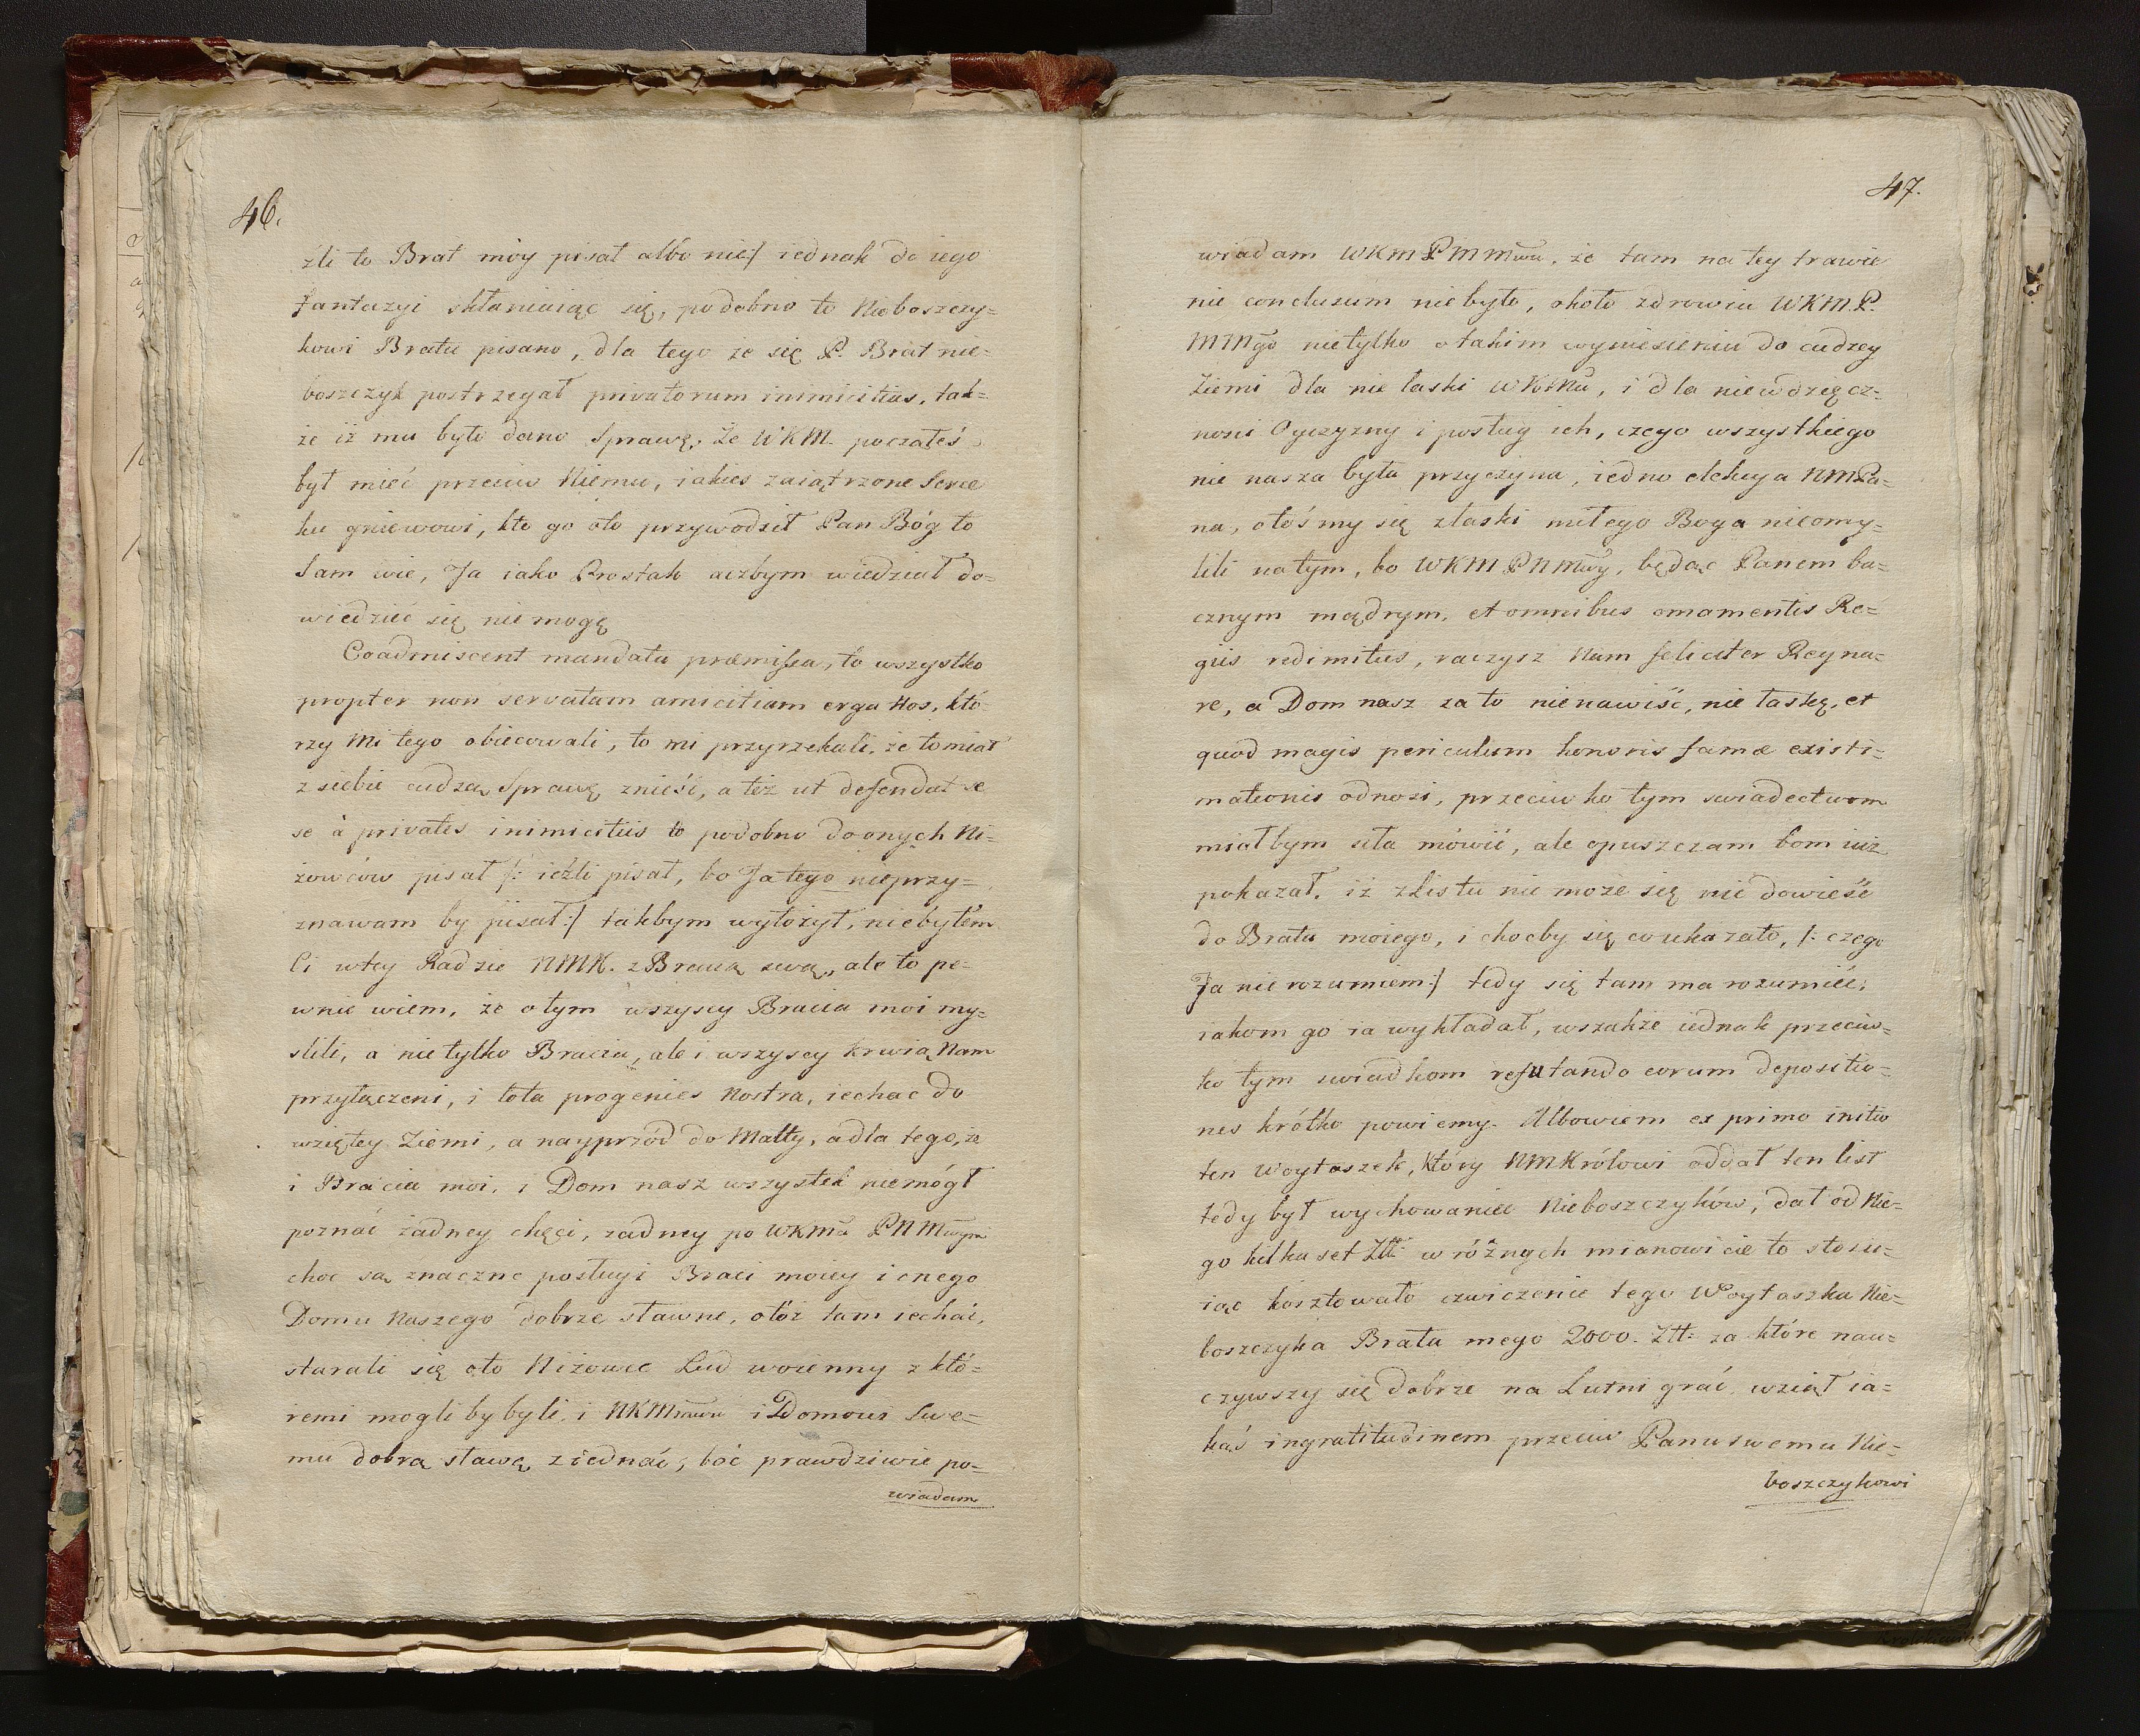 46.
źli to Brat móy pisał albo nie:/ iednak do iego
fantazyi skłaniaiąc się, podobno to Nieboszczy=
kowi Bratu pisano, dla tego że się P. Brat nie=
boszczyk postrzegał privatorum inimicitias, tak=
że iż mu było dano Sprawę, Że WKM. począłeś
był mieć przeciw Niemu, iakieś zaiątrzone Serce
ku gniewowi, kto go oto przywodził Pan Bóg to
Sam wie, Ja iako Prostak aczbym wiedział do=
wiedzieć się nie mogę
Coadmiscent mandata præmissa, to wszystko
propter non servatam amicitiam erga Nos, któ=
rzy Mi tego obiecowali, to mi przyrzekali, że to miał
z siebie cudzą Sprawę znieść, a też ut defendat se
se à privates inimicitiis to podobno do onych Ni=
żowców pisał /: ieźli pisał, bo Ja tego nieprzy=
znawam by pisał:/ takbym wyłożył, niebyłem
Ci wtey Radzie NMK. z Bracią swą, ale to pe=
wnie wiem, że o tym wszyscy Bracia moi my=
slili, a nie tylko Bracia, ale i wszyscy krwią Nam
przyłączeni, i tota progenies Nostra, iechac do
wziętey Ziemi, a nayprzód do Malty, a dla tego, że
i Bracia moi, i Dom nasz wszystek niemógł
poznać żadney chęci, żadney po WKM PNMwym
choc są znaczne posługi Braci moiey i onego
Domu Naszego dobrze sławne, otóż tam iechać,
starali się oto Niżowce Lud woienny z któ=
remi mogli by byli, i NKM i Domowi Swe=
mu dobrą sławę ziednać, boć prawdziwie po=
wiadam
47.
wiadam WKM PMMwu. że tam na tey trawie
nie conclusum niebyło, około zdrowia WKM. P.
MMgo nietylko o takim wyniesieniu do cudzey
Ziemi dla nie łaski WKM, i dla niewdzięcz=
nosci Oyczyzny i posług ich, czego wszystkiego
nie nasza była przyczyna, iedno elekcya NMPa=
na, otośmy się złaski miłego Boga nieomy=
lili na tym, bo WKM PNMwy, będąc Panem ba=
cznym mądrym, et omnibus ornamentis Re=
giis redimitus, raczysz Nam feliciter Reyna=
re, a Dom nasz za to nienawiść, nie łaskę, et
quod magis periculum honoris famæ existi=
mationis odnosi, przeciwko tym swiadectwom
miałbym siła mówić, ale opuszczam bom iuż
pokazał, iż z Listu nie może się nic dowieść
do Brata moiego, i choćby się co ukazało, /: czego
Ja nie rozumiem:/ tedy się tam ma rozumieć,
iakom go ia wykładał, wszakże iednak przeciw=
ko tym swiadkom refutando eorum depositio=
nes krótko powiemy. Albowiem ex primo initio
ten Woytaszek, który NMKrólowi oddał ten list
tedy był wychowaniec Nieboszczyków, dał od Nie=
go kilka set Złł: w różnych mianowicie to stosu=
iąc kosztowało cwiczenie tego Woytaszka Nie=
boszczyka Brata mego 2000. Złł: za które nau=
czywszy się dobrze na Lutni grać, wziął ia=
kąś ingratitudinem przeciw Panu swemu Nie=
boszczykowi